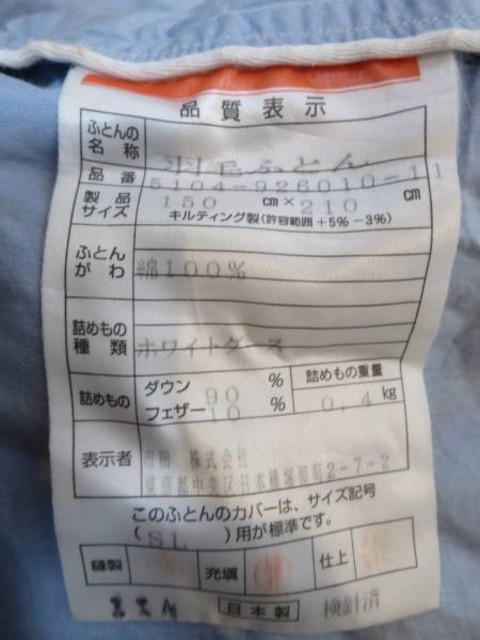 品質表示
ふとんの名称 羽毛ふとん
品番 5104-926010-11
製品サイズ 150cm×210cm
キルティング製(許容範囲+5%-3%)
ふとんがわ 綿100%
詰めもの種類 ホワイトグース
詰めもの ダウン 90% フェザー 10% 詰めもの重量 0.4kg
表示者 株式会社
東京都中央区日本橋堀留町2-7-2
このふとんのカバーは、サイズ記号
(SL)用が標準です。
縫製 充填 仕上
日本製 検針済